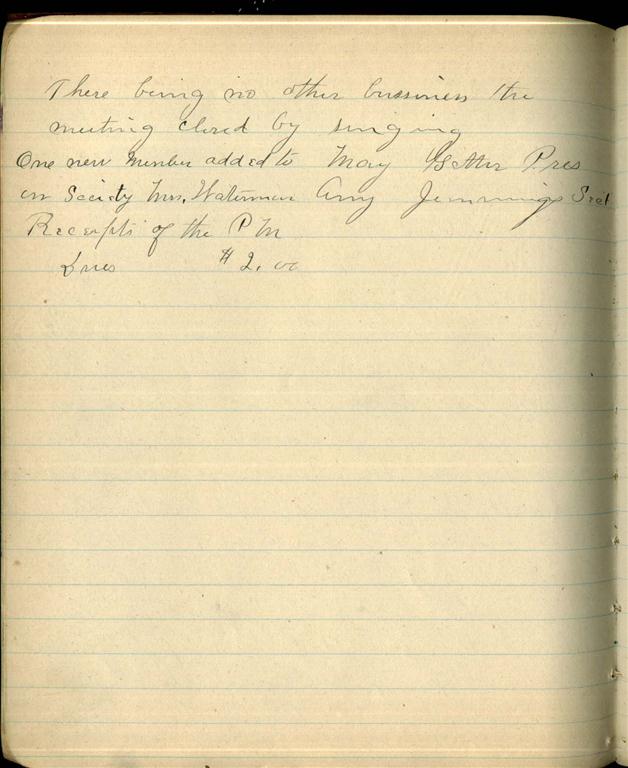 There being no other bussiness the
meeting closed by singing
One new Member added to May Getter Pres
on Society Mrs. Waterman Amy Jennings Sect
Receipts of the P M
Dues $2.00